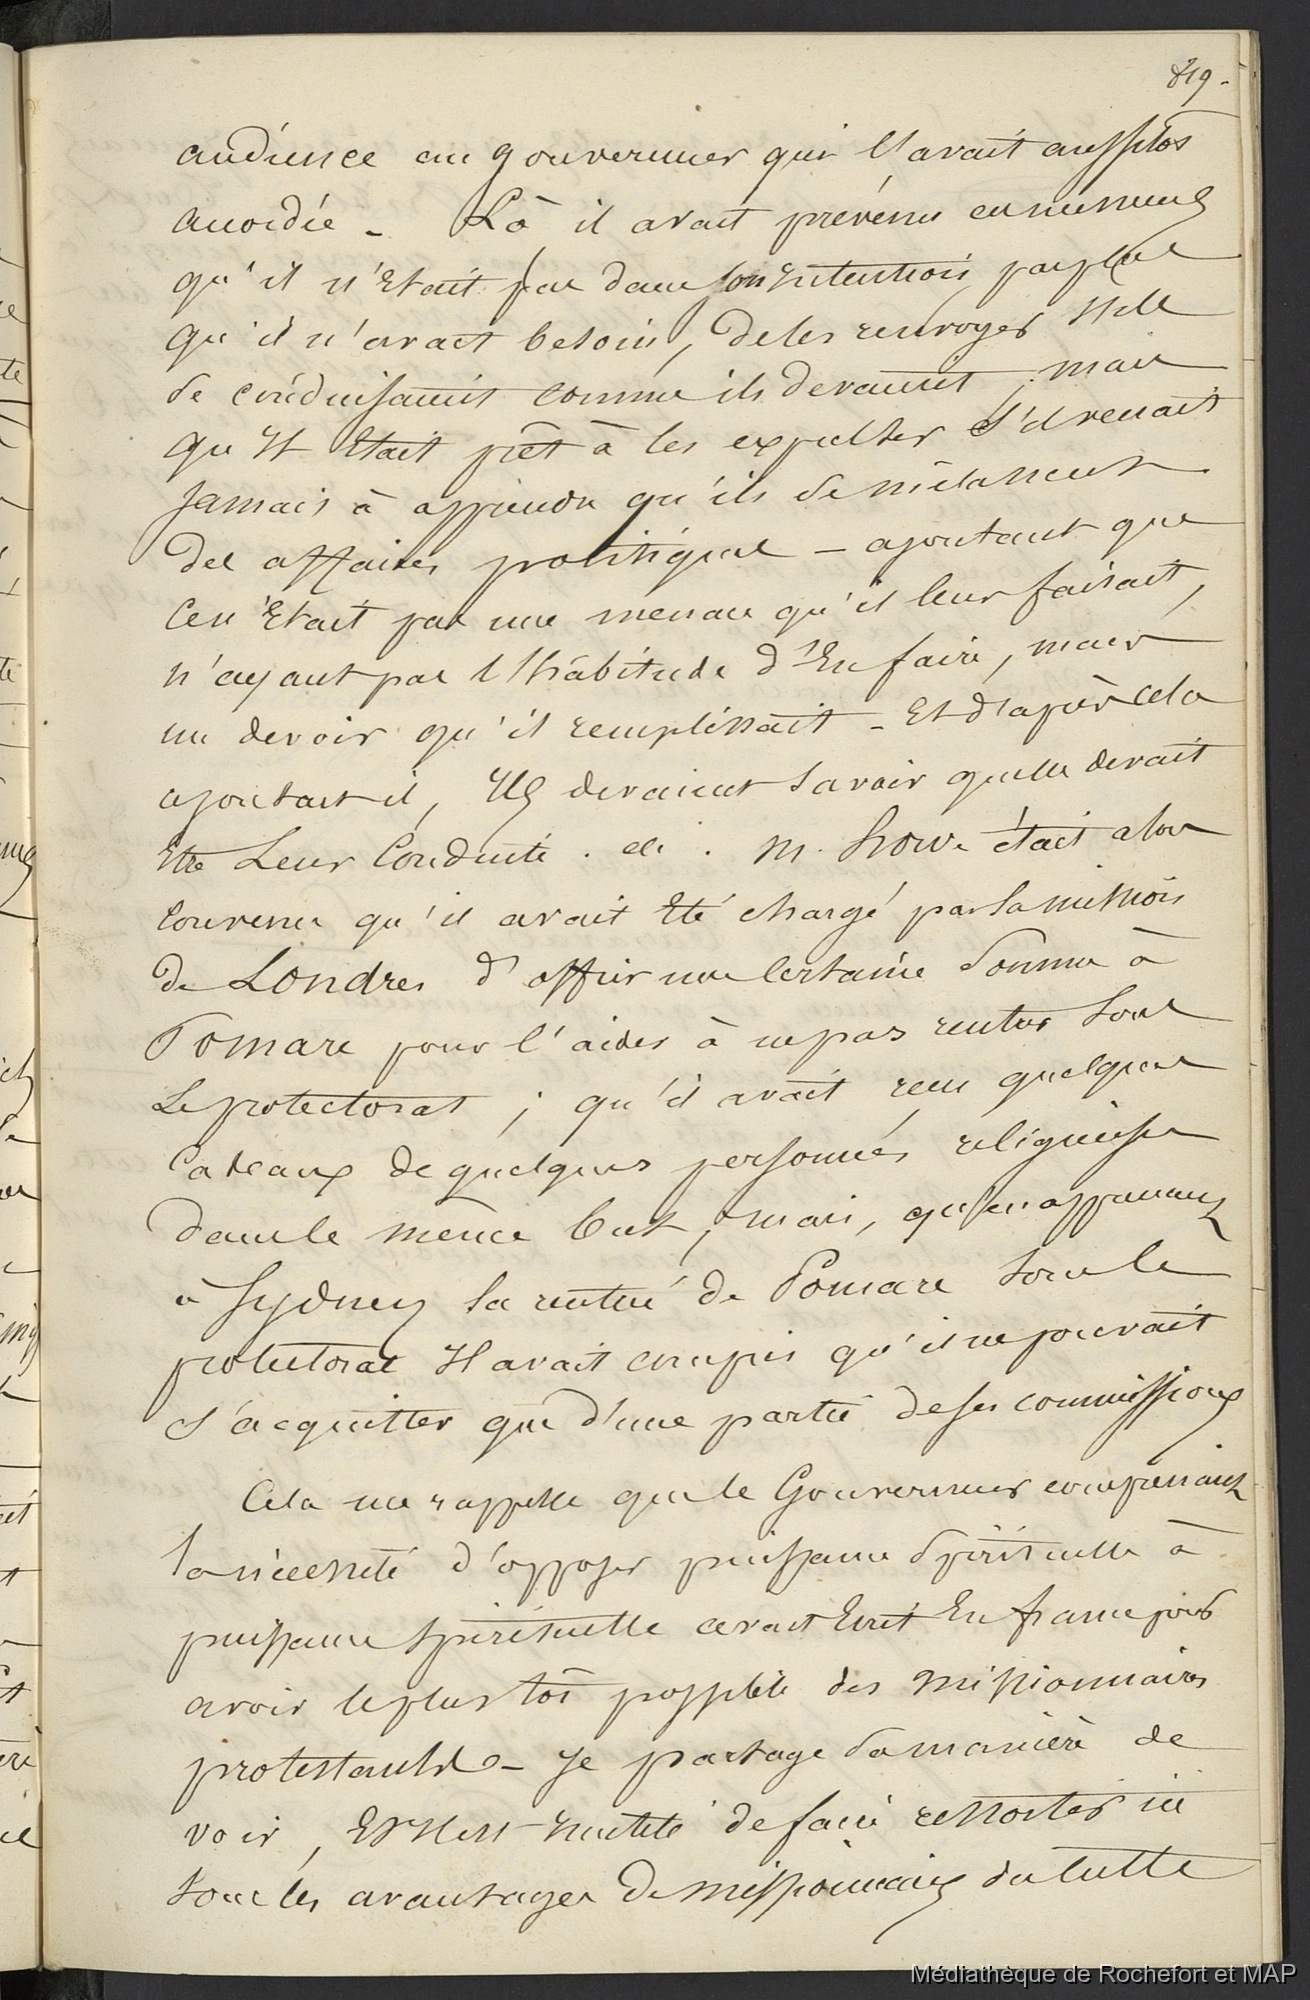 819.
audience au gouverneur qui l'avait aussitôt
accordée - Là il avait prévenu ces messieurs
qu'il n'était pas dans son intention, pas plus
qu'il n'avait besoin, de les renvoyer s'ils
se conduisaient comme ils devaient, mais
qu'il était prêt à les expulser s'il venait
jamais à apprendre qu'ils se mêlassent
des affaires politiques - ajoutant que
ce n'était pas une menace qu'il leur faisait,
n'ayant pas l'habitude d'en faire, mais
un devoir qu'il remplissait - Et d'après cela
ajoutait il, Ils devaient savoir quelle devait
être leur conduite. M. Howe était alors
convenu qu'il avait été chargé par la mission
de Londres d'offrir une certaine somme à
Pomare pour l'aider à ne pas rentrer sous
le protectorat; qu'il avait reçu quelques
cadeaux de quelques personnes religieuses
dans le même but, mais, qu'en apprenant
à Sydney la rentrée de Pomare sous le
protectorat Il avait compris qu'il ne pouvait
s'acquitter que d'une partie de ses commissions
Cela me rappelle que le Gouverneur comprenant
la nécessité d'opposer puissance spirituelle à
puissance spirituelle avait écrit En france pour
avoir le plus tôt possible des missionnaires
protestants - Je partage sa manière de
voir, Et Il est inutile de faire ressortir ici
tous les avantages de missionnaires du culte
Médiathèque de Rochefort et MAP